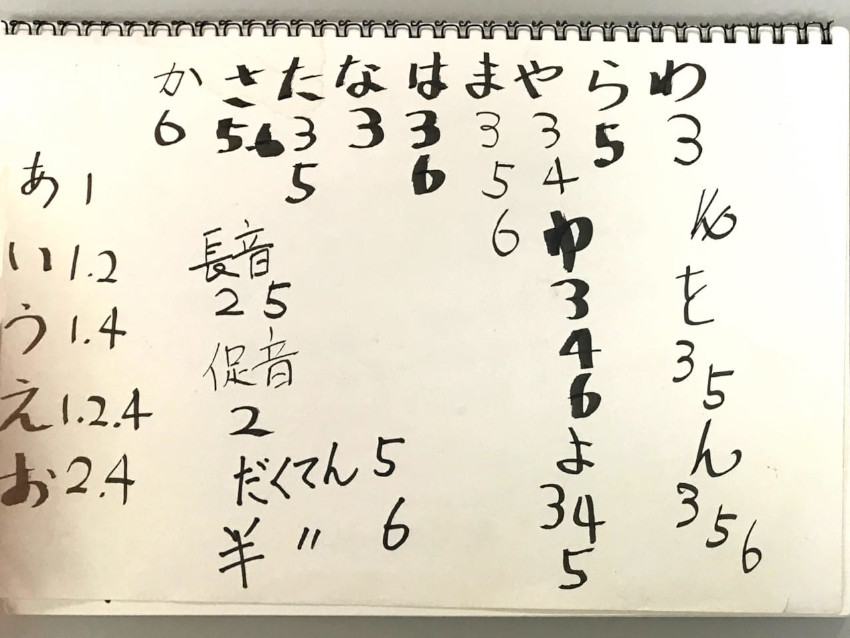 か さ た な は ま や ら わ
6 5.6 3 3 3 3 3 5 3
5 6 5 4
6 ゆ
あ 1
い 1.2
う 1.4
え 1.2.4
お 2.4
長音
2 5
促音
2
だくてん 5
半 〃 6
3
4
6
よ
3 4
5
を
3 5
ん
3 5 6